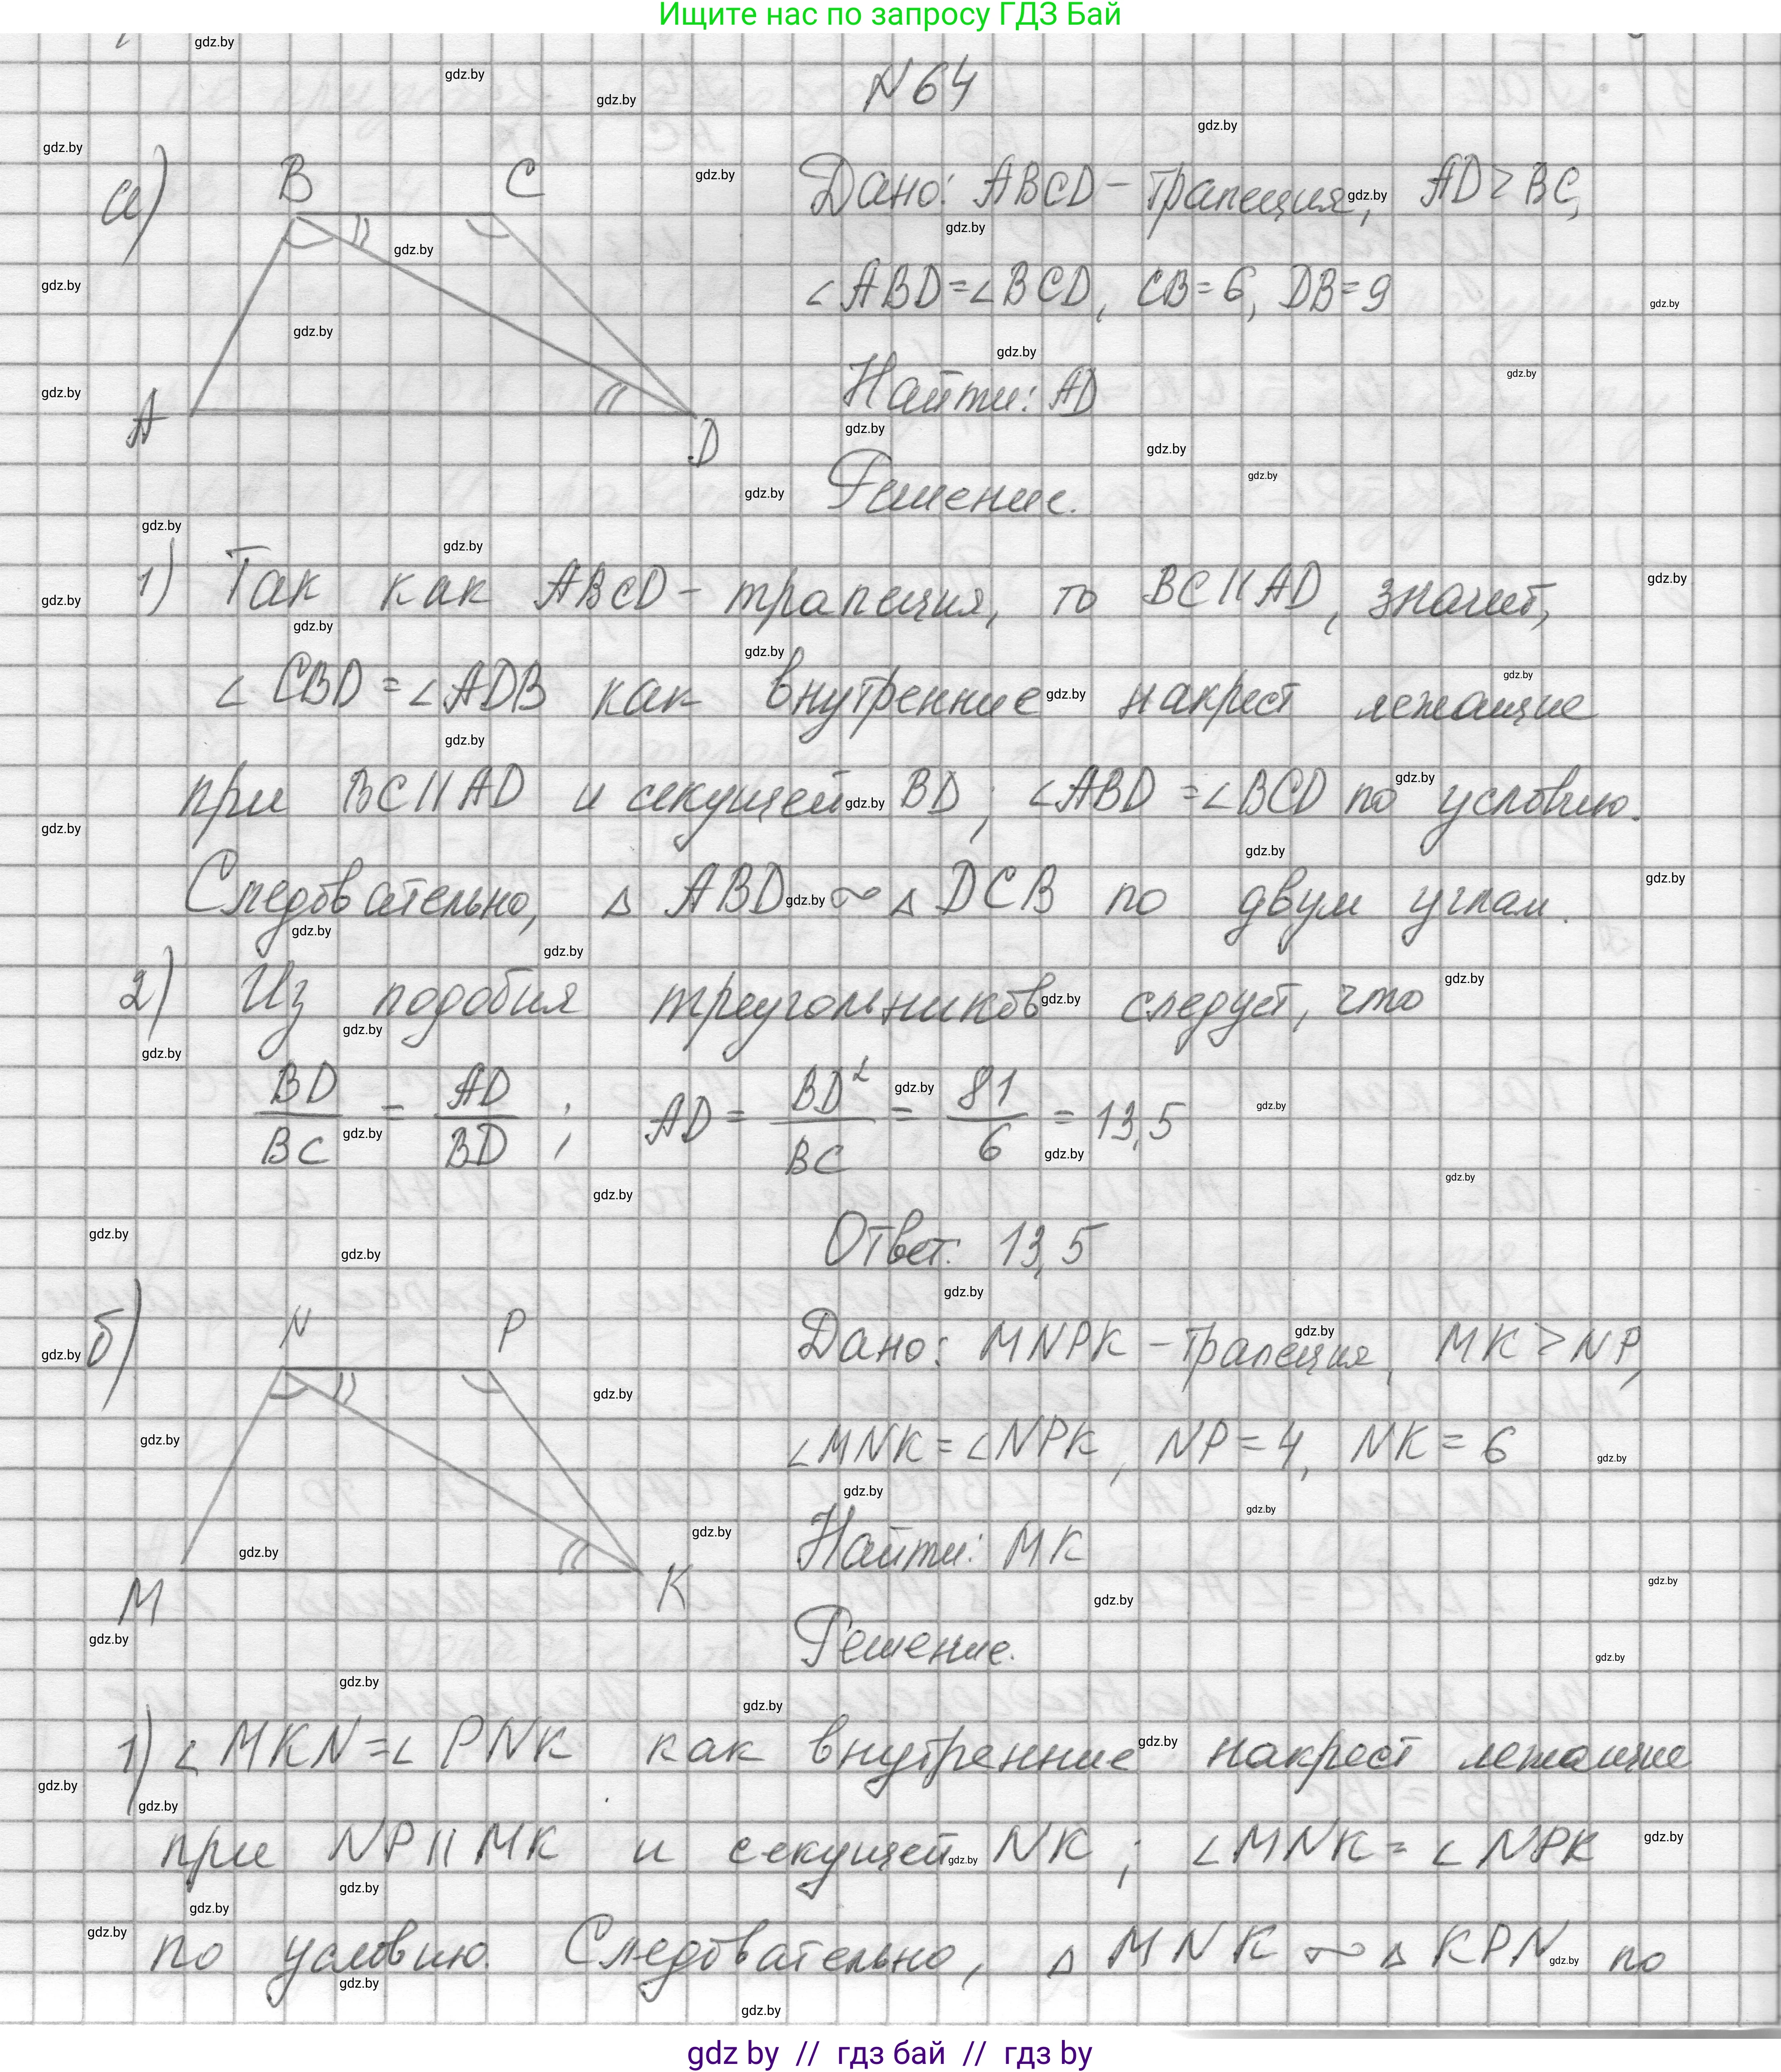 Ищите нас по запросу ГДЗ Бай
N 64
а)
B C
A D
Дано: ABCD - трапеция, AD > BC,
∠ABD = ∠BCD, CB = 6, DB = 9
Найти: AD
Решение.
1) Так как ABCD - трапеция, то BC || AD, значит,
∠CBD = ∠ADB как внутренние накрест лежащие
при BC || AD и секущей BD; ∠ABD = ∠BCD по условию.
Следовательно, △ ABD ∾ △ DCB по двум углам.
2) Из подобия треугольников следует, что
BD/BC = AD/BD; AD = BD²/BC = 81/6 = 13,5
Ответ: 13,5
б)
N P
M K
Дано: MNPK - трапеция, MK > NP,
∠MNK = ∠NPK, NP = 4, NK = 6
Найти: MK
Решение.
1) ∠MKN = ∠PNK как внутренние накрест лежащие
при NP || MK и секущей NK; ∠MNK = ∠NPK
по условию. Следовательно, △ MNK ∾ △ KPN по
gdz by // гдз бай // гдз by